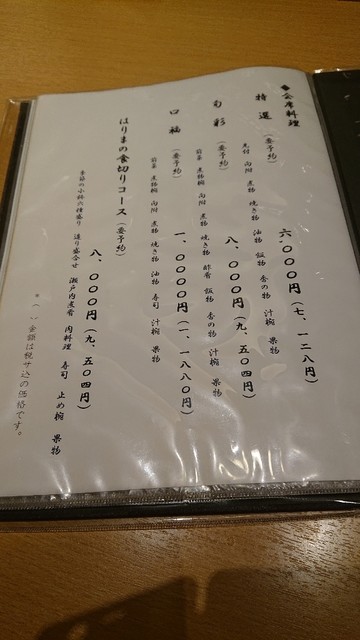 ◆会席料理
特選（要予約）
六、〇〇〇円（七、一二八円）
先付 向附 煮物 焼き物 油物 飯物 香の物 汁椀 果物
旬彩（要予約）
八、〇〇〇円（九、五〇四円）
前菜 煮物椀 向附 煮物 焼き物 酢肴 飯物 香の物 汁椀 果物
口福（要予約）
一、〇〇〇〇円（一、一八八〇円）
前菜 煮物椀 向附 煮物 焼き物 油物 寿司 汁椀 果物
はりまの食切りコース（要予約）
八、〇〇〇円（九、五〇四円）
季節の小鉢六種盛り 造り盛合せ 瀬戸内煮肴 肉料理 寿司 止め椀 果物
＊（ ）金額は税サ込の価格です。